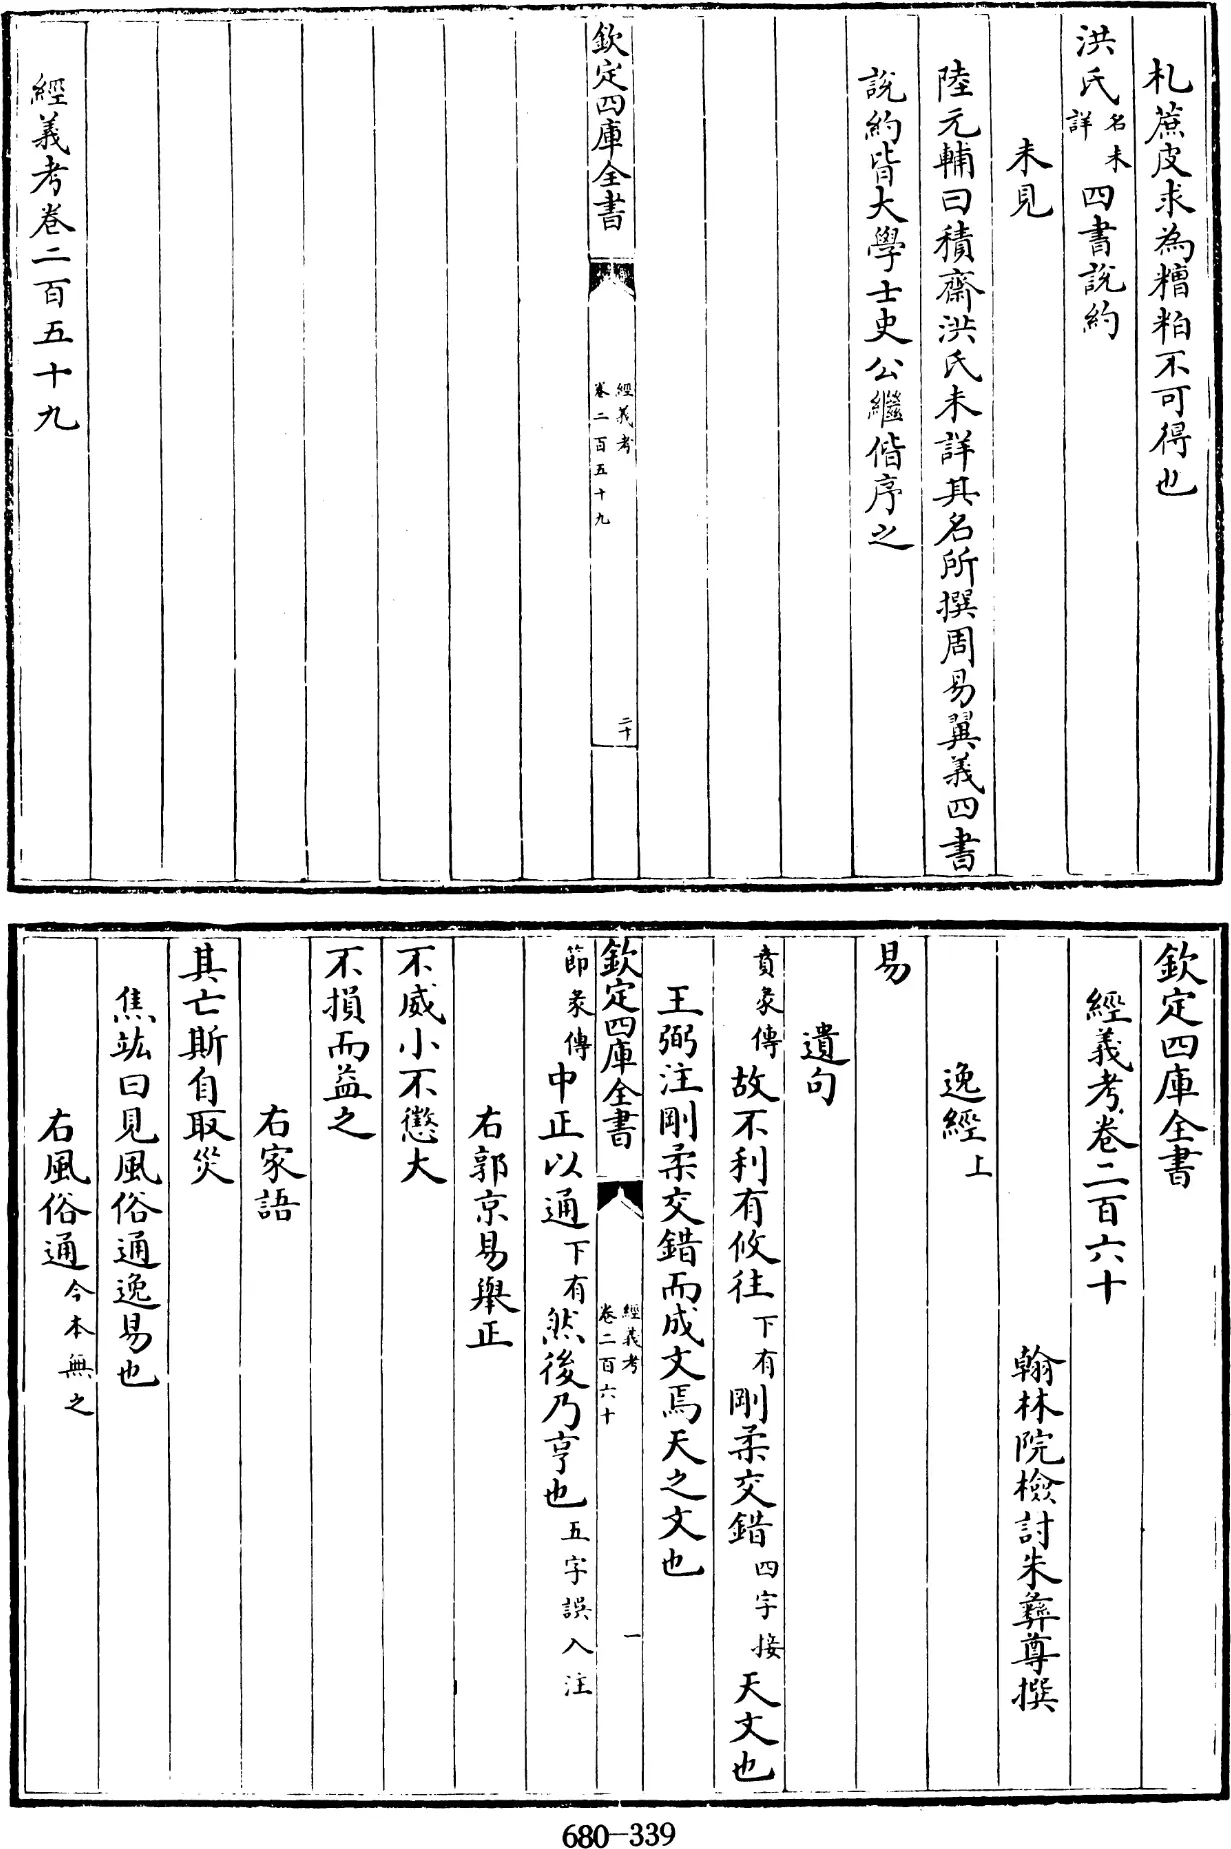 札蔗皮求為糟粕不可得也
洪氏名未詳四書說約
未見
陸元輔曰積齋洪氏未詳其名所撰周易翼義四書
說約皆大學士史公繼偕序之
欽定四庫全書
經義考
卷二百五十九
二十
經義考卷二百五十九
欽定四庫全書
經義考卷二百六十
翰林院檢討朱彝尊撰
逸經上
易
遺句
賁彖傳故不利有攸往下有剛柔交錯四字接天文也
王弼注剛柔交錯而成文焉天之文也
欽定四庫全書
經義考
卷二百六十
一
節彖傳中正以通下有然後乃亨也五字誤入注
右郭京易舉正
不威小不懲大
不損而益之
右家語
其亡斯自取災
焦竑曰見風俗通逸易也
右風俗通今本無之
680-339